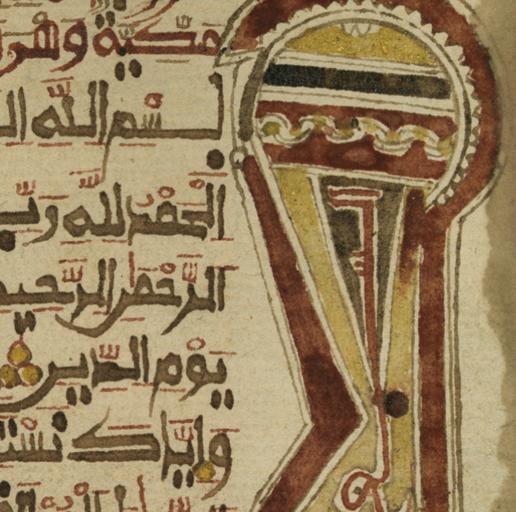 مكية وهي
بسم الله ا
الحمد لله رب
الرحمن الرحيم
يوم الدين
وإياك نست